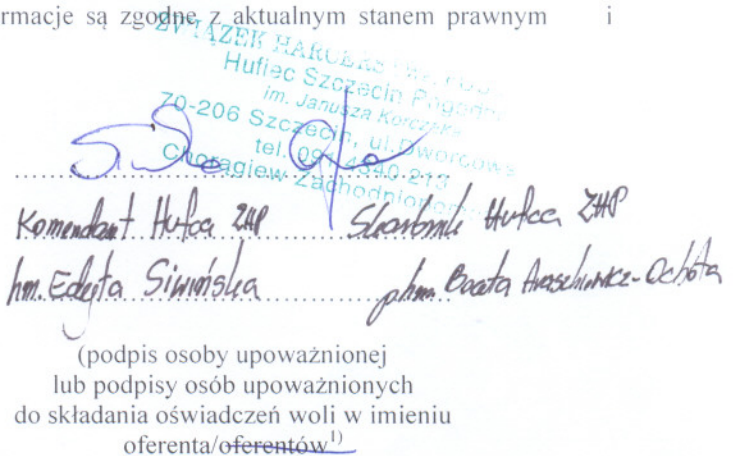 rmacje są zgodne z aktualnym stanem prawnym i
ZWIĄZEK
Hufiec Szczecin Pogodno
im. Janusza Korczaka
70-206 Szczecin, ul. Dworcowa
tel. 091 4340-213
Chorągiew Zachodniopom
Komendant Hufca ZHP Skarbnik Hufca ZHP
hm. Edyta Siwińska phm. Beata
(podpis osoby upoważnionej
lub podpisy osób upoważnionych
do składania oświadczeń woli w imieniu
oferenta/oferentów¹⁾